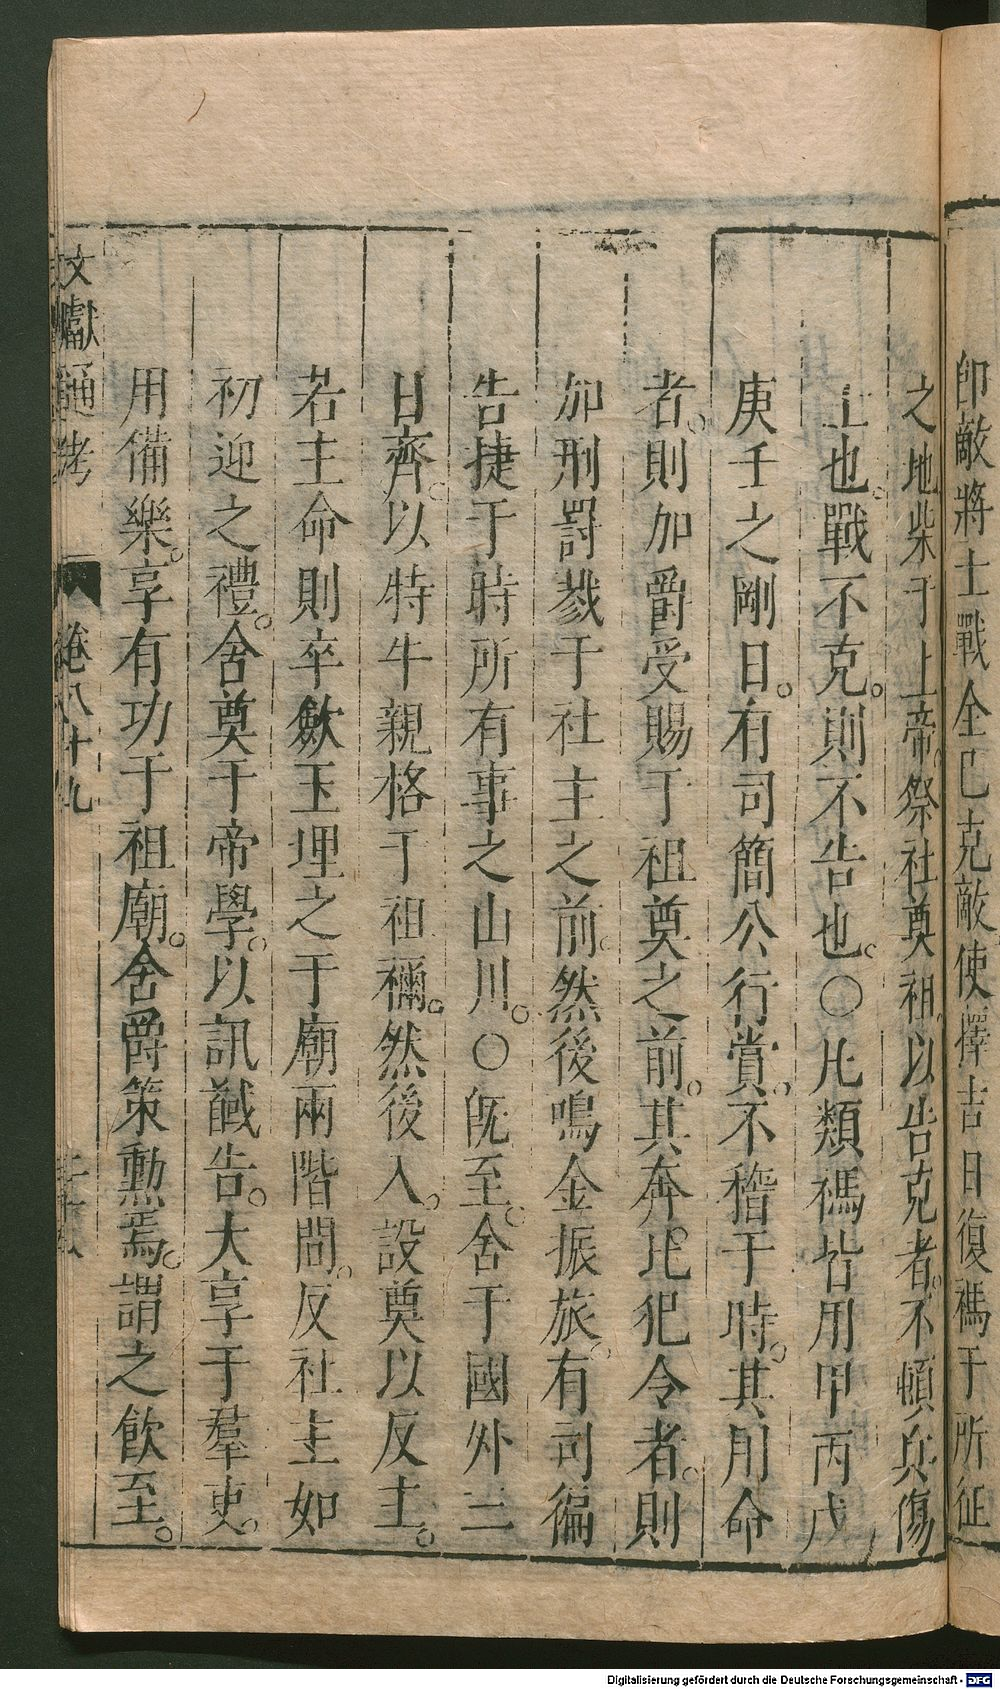 即敵將士戰全已克敵使擇吉日復禡于所征
之地柴于上帝。祭社奠祖。以告克者。不頓兵傷
士也。戰不克。則不告也。○凡類禡皆用甲丙戊
庚壬之剛日。有司簡公行賞。不稽于時。其用命
者。則加爵受賜于祖奠之前。其奔北犯令者。則
加刑罰戮于社主之前。然後鳴金振旅。有司徧
告捷于時所有事之山川。○既至。舍于國外三
日齊。以特牛親格于祖禰。然後入。設奠以反主。
若主命則卒斂玉埋之于廟兩階間。反社主如
初迎之禮。舍奠于帝學。以訊馘告。大享于羣吏。
用備樂。享有功于祖廟。舍爵策勳焉。謂之飲至。
文獻通考 卷八十九
Digitalisierung gefördert durch die Deutsche Forschungsgemeinschaft - DFG